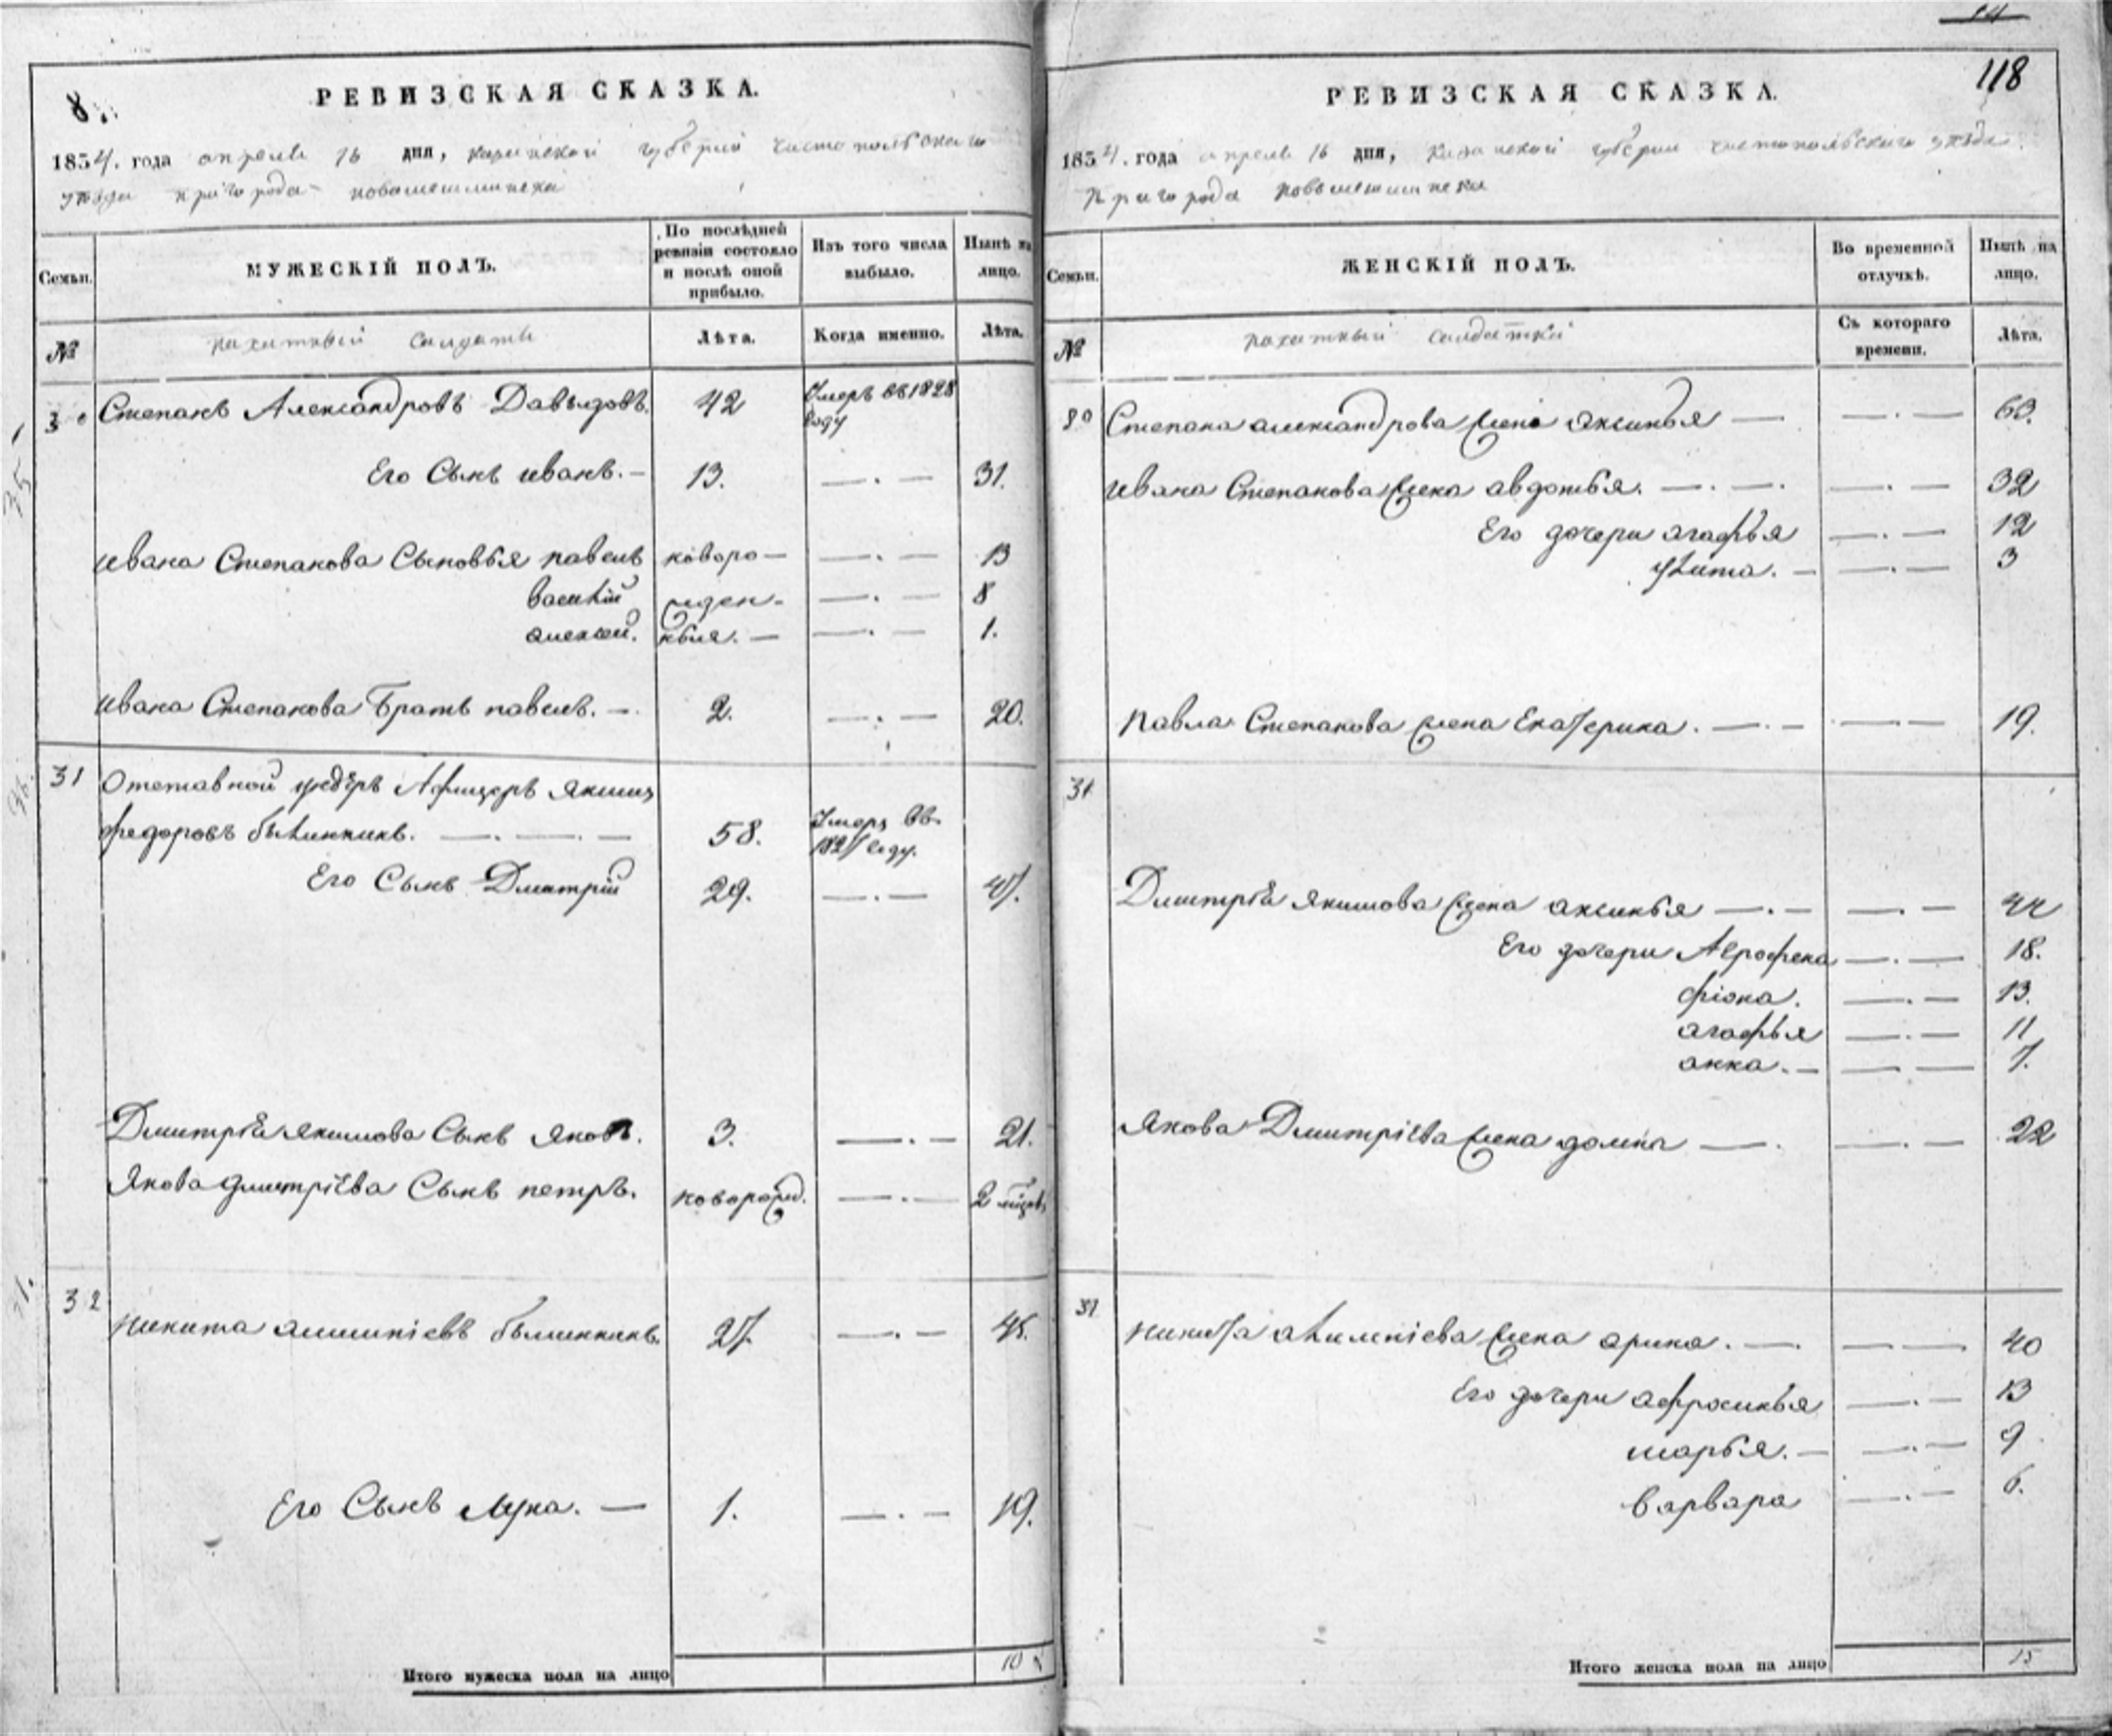 14
8.
РЕВИЗСКАЯ СКАЗКА.
1834. года апреля 16 дня, казанской губернии чистопольскаго
уезда пригорода новошешминска
Семьи.
МУЖЕСКІЙ ПОЛЪ.
По послѣдней ревизіи состояло и послѣ оной прибыло.
Изъ того числа выбыло.
Нынѣ на лицо.
№
пахатный солдаты
Лѣта.
Когда именно.
Лѣта.
30 Степанъ Александровъ Давыдовъ. 42 Умеръ въ 1828 году
35
Его Сынъ иванъ. — 13. — . — 31.
ивана Степанова Сыновья павелъ новоро — — . — 13
василій жден- — . — 8
алексей. ныя. — — . — 1.
ивана Степанова Братъ павелъ. — 2. — . — 20.
31 Отставной ундеръ Афицеръ якимъ
36.
федоровъ былинкинъ. — . — . — 58. Умеръ въ 1821 году.
Его Сынъ Дмитрій 29. — . — 47.
Дмитрія якимова Сынъ яковъ. 3. — . — 21.
Якова дмитріева Сынъ петръ. новорожд. — . — 2 мѣсяцов
32 никита алимпіевъ былинкинъ. 27. — . — 45.
Его Сынъ лука. — 1. — . — 19.
Итого мужеска пола на лицо 10
118
РЕВИЗСКАЯ СКАЗКА.
1834. года апреля 16 дня, казанской губернии чистопольскаго уезда
пригорода новошешминска
Семьи.
ЖЕНСКІЙ ПОЛЪ.
Во временной отлучкѣ.
Нынѣ на лицо.
№
пахатный солдатки
Съ котораго времени.
Лѣта.
30 Степана александрова жена аксинья — — . — 63.
ивана Степанова жена авдотья. — . — . — . — 32
Его дочери агафья — . — 12
улита. — — . — 3
павла Степанова жена Екатерина. — . — — . — 19.
31
Дмитрія якимова жена аксинья — . — — . — 44
Его дочери Аграфена — . — 18.
фіона. — . — 13.
агафья — . — 11
анна. — — . — 7.
якова Дмитріева жена домна — . — . — 22
32 никита алимпіева жена арина. — . — . — 40
Его дочери афросинья — . — 13
марья. — — . — 9
варвара — . — 6.
Итого женска пола на лицо 15